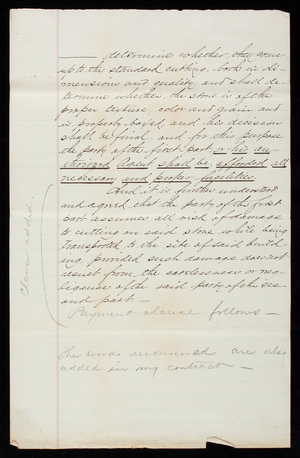 determine whether they come
up to the standard cutting, both in di-
mensions and quality, and shall de-
termine whether the stone is of the
proper texture, color and grain and
is properly based, and his decision
shall be final, and for this purpose
the party of the first part or his au-
thorized Agent shall be afforded all
necessary and proper facilities.
And it is further understood
and agreed that the party of the first
part assumes all risk of damage
to cutting on said stone while being
transported to the site of said build-
ing, provided such damage does not
result from the carelessness or neg-
ligence of the said party of the sec-
ond part —
Payment clause follows —
The words underlined are also
added in my contract —
Clause added